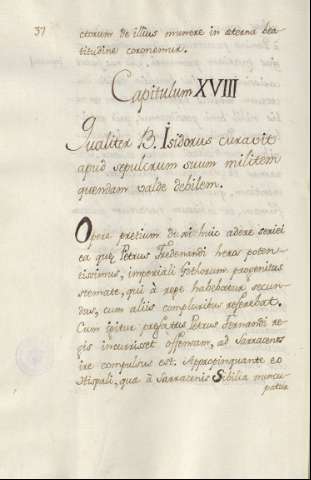 37
ctorum de illius munere in æterna bea-
titudine coronemur.
Capitulum XVIII
Qualiter B. Isidorus curavit
apud sepulcrum suum militem
quendam valde debilem.
Opere pretium de sit huic adere seriei
ea quę Petrus Fredenandi heros poten-
tissimus, imperiali gothorum progenitus
stemate, qui à rege habebatur secun-
dus, cum aliis compluribus referebat.
Cum igitur prefatus Petrus Fernandi re-
gis incurrisset offensam, ad Sarracenos
ire compulsus est. Appropinquante eo
Hispali, quæ à Sarracenis Sibilia nuncu-
patur